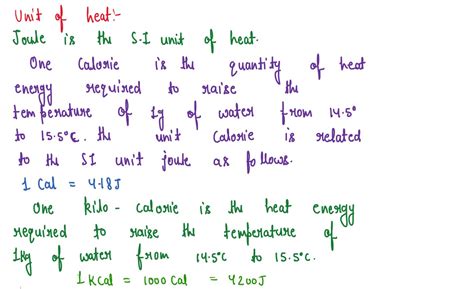 Unit of heat:-
Joule is the S.I unit of heat.
One Calorie is the quantity of heat
energy required to raise the
temperature of 1g of water from 14.5°
to 15.5°C. the unit Calorie is related
to the SI unit joule as follows.
1 Cal = 4.18J
One kilo - calorie is the heat energy
required to raise the temperature of
1kg of water from 14.5°C to 15.5°C.
1 KCal = 1000 Cal = 4200J